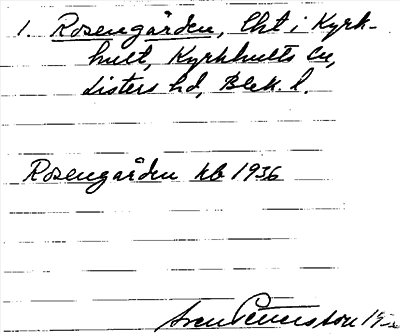 1. Rosengården, Lht i Kyrk-
hult, Kyrkhults sn,
Listers hd, Blek. l.
Rosengården kb 1936
Sven Petersson